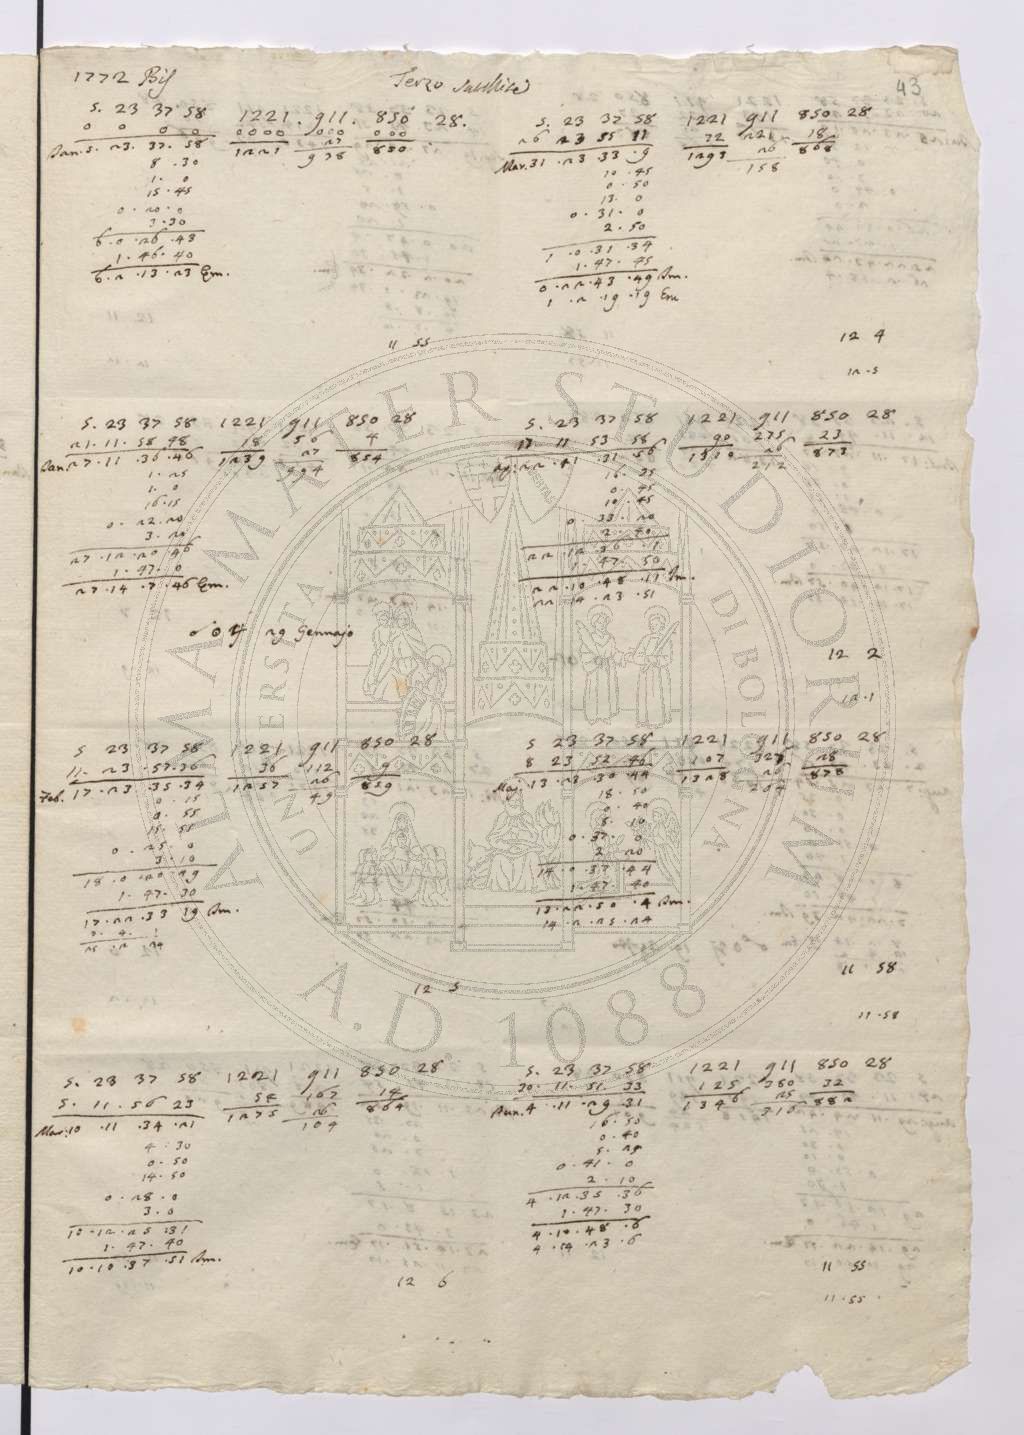 43
1772 Bis
Terzo Satellite
5. 23 37 58 1221. 911. 850 28.
0 0 0 0 0000 000 000
Jan. 5. 23. 37. 58 1221 27 850
938
8 . 30
1. 0
15 . 45
0 . 20 . 0
3 . 30
6 . 0 . 26 . 43
1 . 46 . 40
6 . 2 . 13 . 23 Em.
11 55
5. 23 37 58 1221 911 850 28
21. 11. 58 48 18 56 4
Jan. 27 . 11 . 36 . 46 1239 27 854
994
1. 25
1. 0
16. 15
0. 22. 20
3. 20
27 . 12 . 20 46
1 . 47 . 0
27 . 14 . 7 . 46 Em.
☍ ☉ ♃ 29 Gennajo
5 23 37 58 1221 911 850 28
11. 23 . 57. 36 36 112 9
Feb. 17 . 23 . 35 . 34 1257 26 859
49
0. 15
0. 55
15. 55
0 . 25 . 0
3. 10
18 . 0 . 20 . 49
1. 47. 30
17 . 22 . 33 19 Im.
12 5
5. 23 37 58 1221 911 850 28
5. 11. 56 23 54 167 14
Mar. 10 . 11 . 34 . 21 1275 26 864
104
4 . 30
0. 50
14. 50
0 . 28 . 0
3. 0
10 . 12 . 25 . 31
1. 47. 40
10 . 10 . 37 . 51 Im.
12 6
5. 23 37 58 1221 911 850 28
26 23 55 11 72 221 18
Mar. 31 . 23 . 33 . 9 1293 26 868
158
10 . 45
0 . 50
13. 0
0 . 31 . 0
2 . 50
1 . 0 . 31 . 34
1. 47. 45
0 . 22 . 43 . 49 Im.
1 . 2 . 19 . 19 Em
12 4
12 . 5
5. 23 37 58 1221 911 850 28
17 11 53 58 90 275 23
Ap. 22 . 11 . 31 56 1310 26 873
212
16. 35
0. 45
10. 45
0 . 33 . 20
2. 40
22 . 12 . 36 . 1
1. 47. 50
22 . 10 . 48 . 11 Im.
22 . 14 . 23 . 51
12 2
12 . 1
5 23 37 58 1221 911 850 28
8 23 52 46 107 327 28
Maj. 13 . 23 . 30 . 44 1328 26 878
264
18. 50
0. 40
8. 10
0 . 37. 0
2. 20
14 . 0 . 37 . 44
1. 47. 40
13 . 22 . 50 . 4 Im.
14 . 2 . 25 . 24
11 58
11 . 58
5. 23 37 58 1221 911 850 28
30. 11. 51. 33 125 380 32
Jun. 4 . 11 . 29 . 31 1346 25 882
316
16. 50
0. 40
5. 25
0 . 41 . 0
2. 10
4 . 12 . 35 . 36
1. 47. 30
4 . 10 . 48 . 6
4 . 14 . 23 . 6
11 55
11 . 55
ALMA MATER STUDIORUM
UNIVERSITA DI BOLOGNA
A.D. 1088